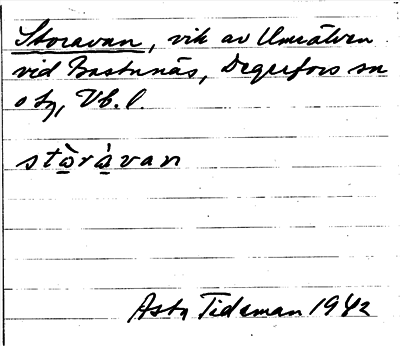 Storavan, vik av Umeälven
vid Bastunäs, Degerfors sn
o tg, Vb. l.
stò̱rà̱van
Asta Tideman 1942